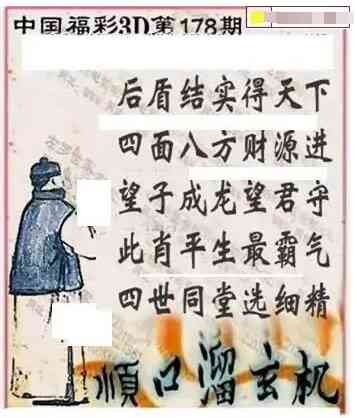 中国福彩3D第178期
后盾结实得天下
四面八方财源进
望子成龙望君守
此肖平生最霸气
四世同堂选细精
顺口溜玄机